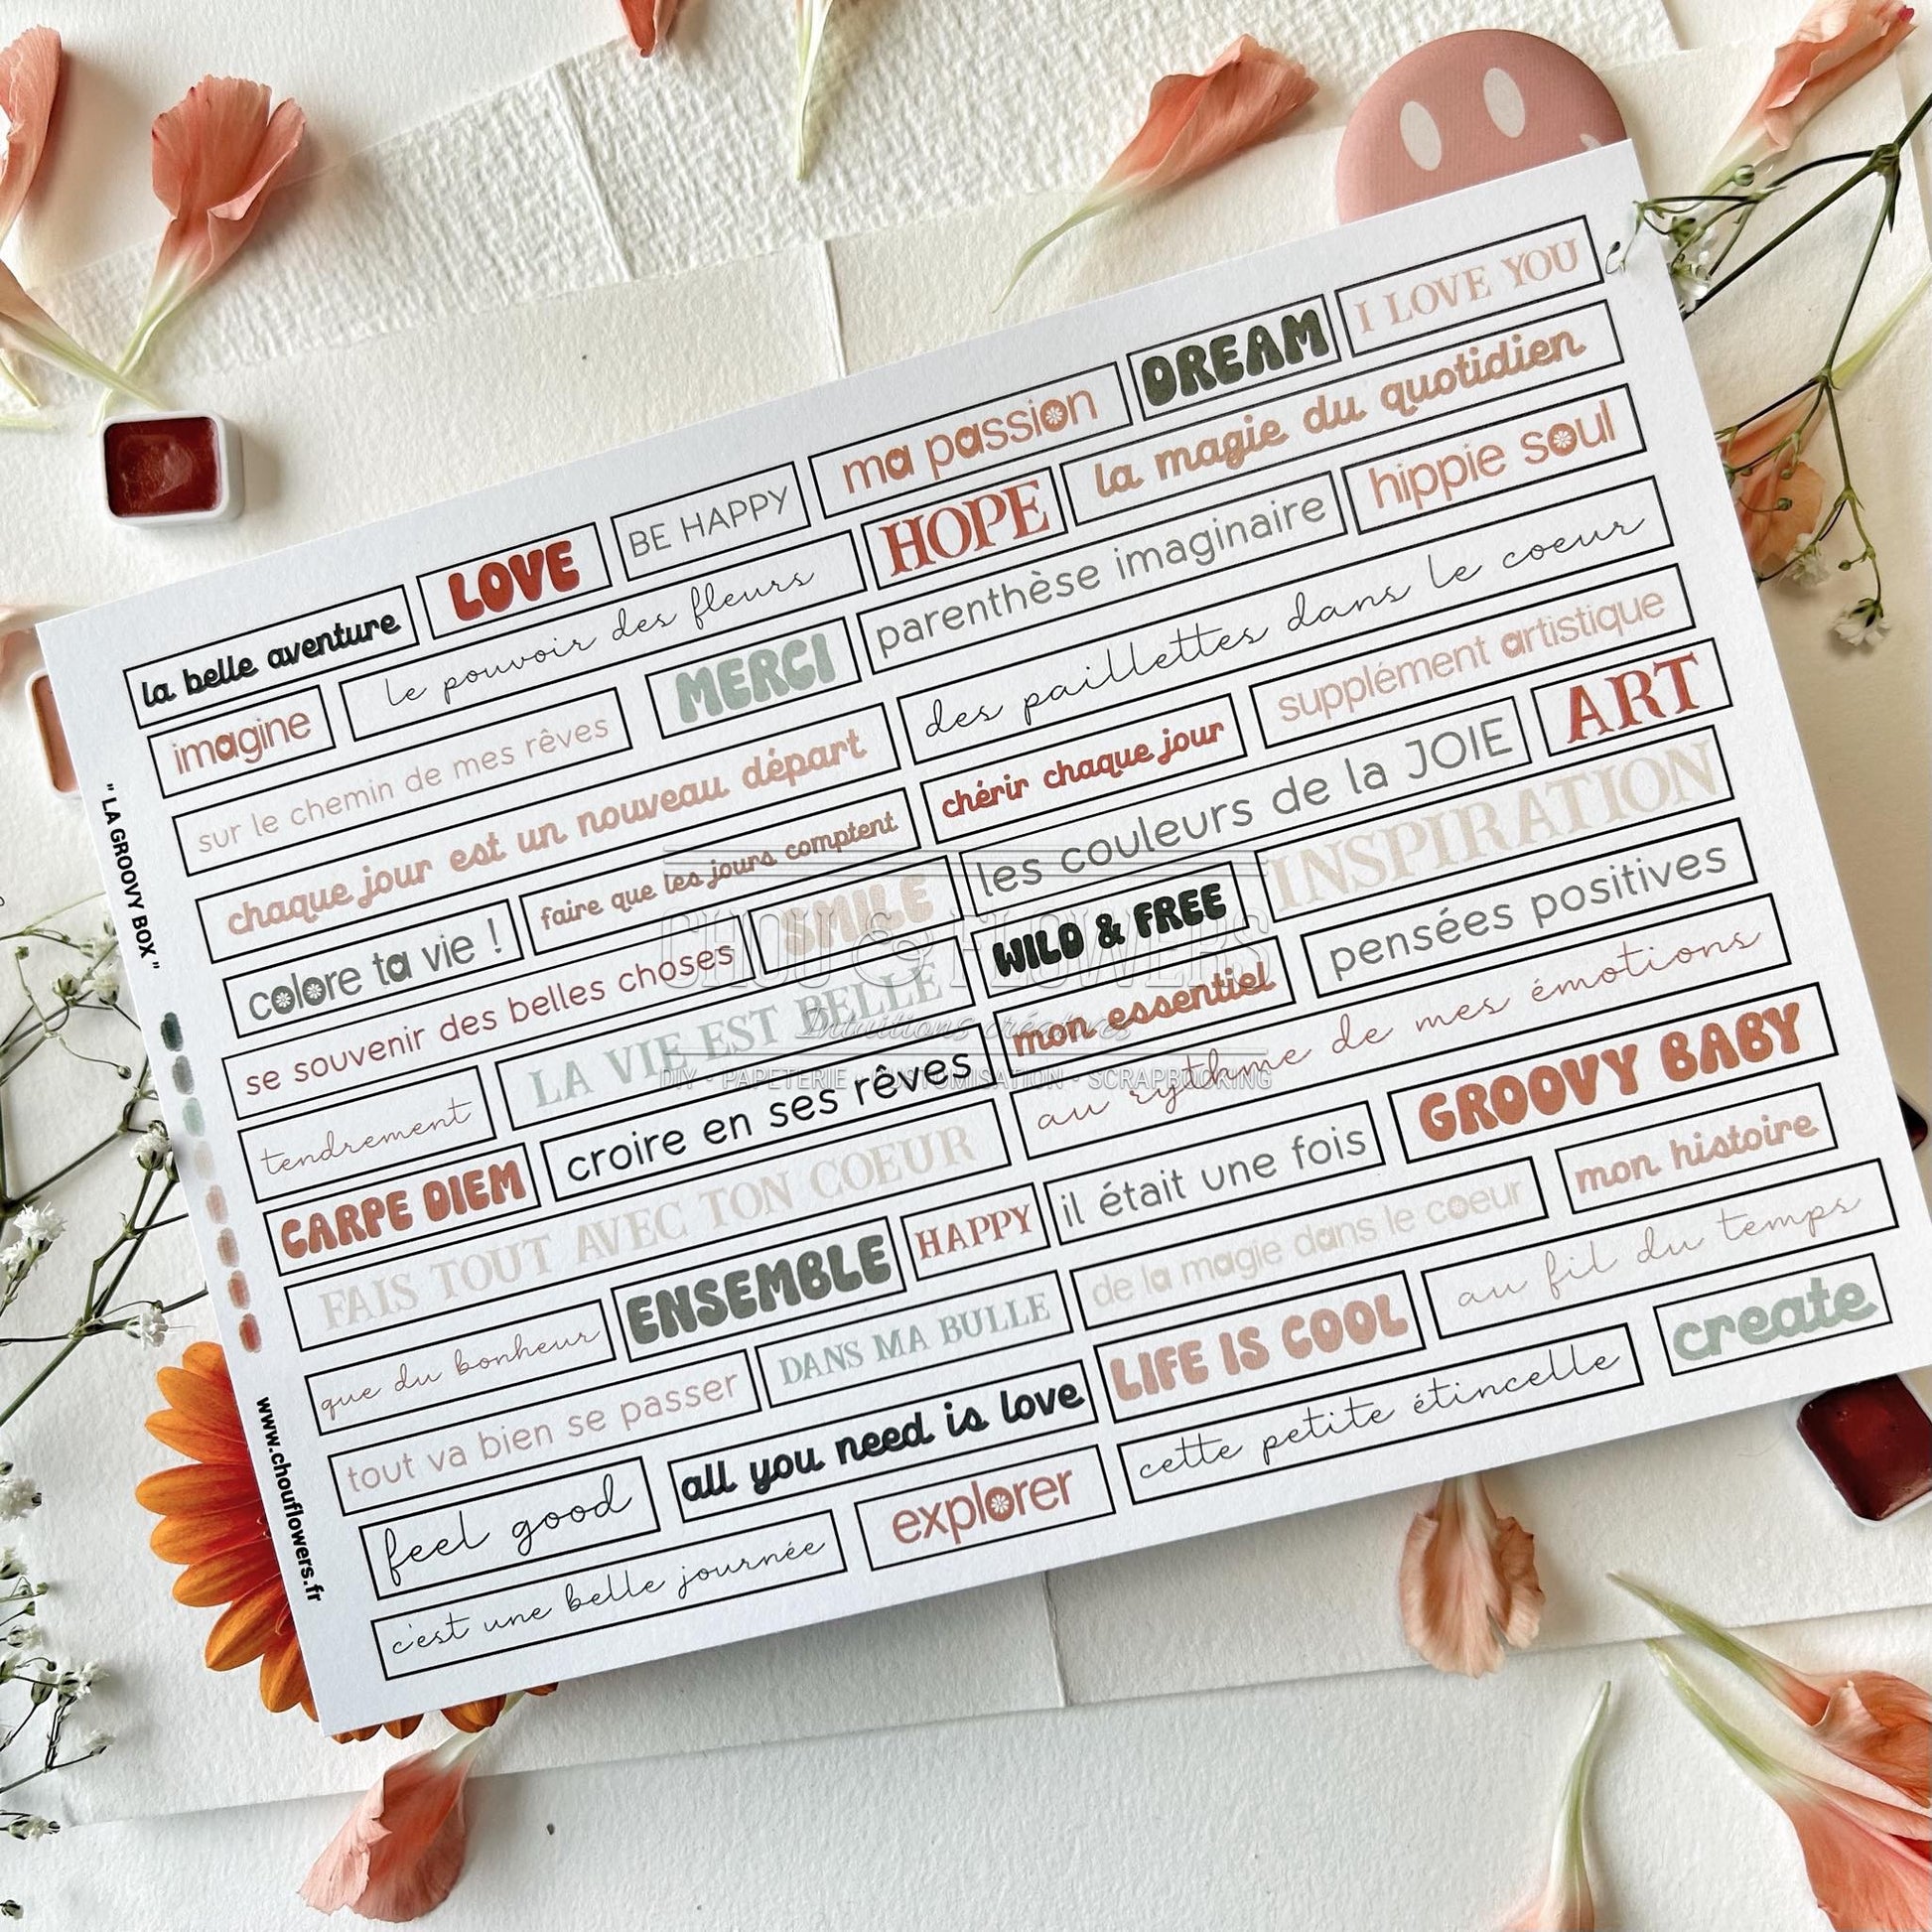 la belle aventure
LOVE
BE HAPPY
ma passion
DREAM
I LOVE YOU
imagine
le pouvoir des fleurs
HOPE
la magie du quotidien
sur le chemin de mes rêves
MERCI
parenthèse imaginaire
hippie soul
chaque jour est un nouveau départ
des paillettes dans le coeur
colore ta vie !
faire que les jours comptent
chérir chaque jour
supplément artistique
se souvenir des belles choses
SMILE
les couleurs de la JOIE
ART
tendrement
LA VIE EST BELLE
WILD & FREE
INSPIRATION
CARPE DIEM
croire en ses rêves
mon essentiel
pensées positives
FAIS TOUT AVEC TON COEUR
au rythme de mes émotions
que du bonheur
ENSEMBLE
HAPPY
il était une fois
GROOVY BABY
tout va bien se passer
DANS MA BULLE
de la magie dans le coeur
mon histoire
feel good
all you need is love
LIFE IS COOL
au fil du temps
c'est une belle journée
explorer
cette petite étincelle
create
" LA GROOVY BOX "
www.chouflowers.fr
CHOU & FLOWERS
Intuitions créatives
DIY • PAPETERIE • CUSTOMISATION • SCRAPBOOKING